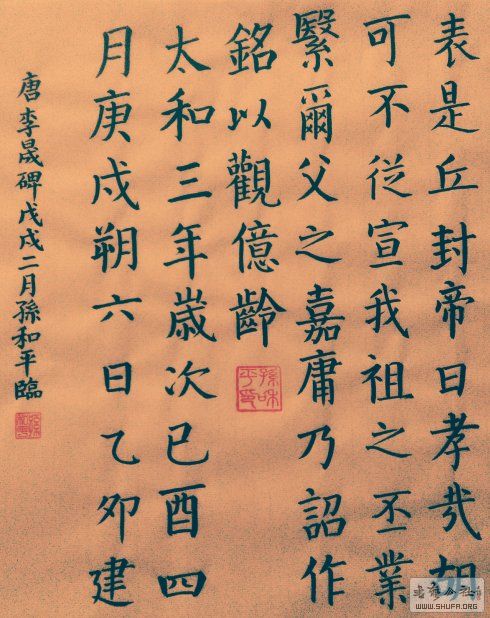 表是丘封帝曰孝哉胡
可不从宣我祖之丕業
繄爾父之嘉庸乃詔作
銘以觀億齡
太和三年歲次己酉四
月庚戌朔六日乙卯建
唐李晟碑戊戌二月孫和平臨
孫和平印
WWW.SHUFA.ORG